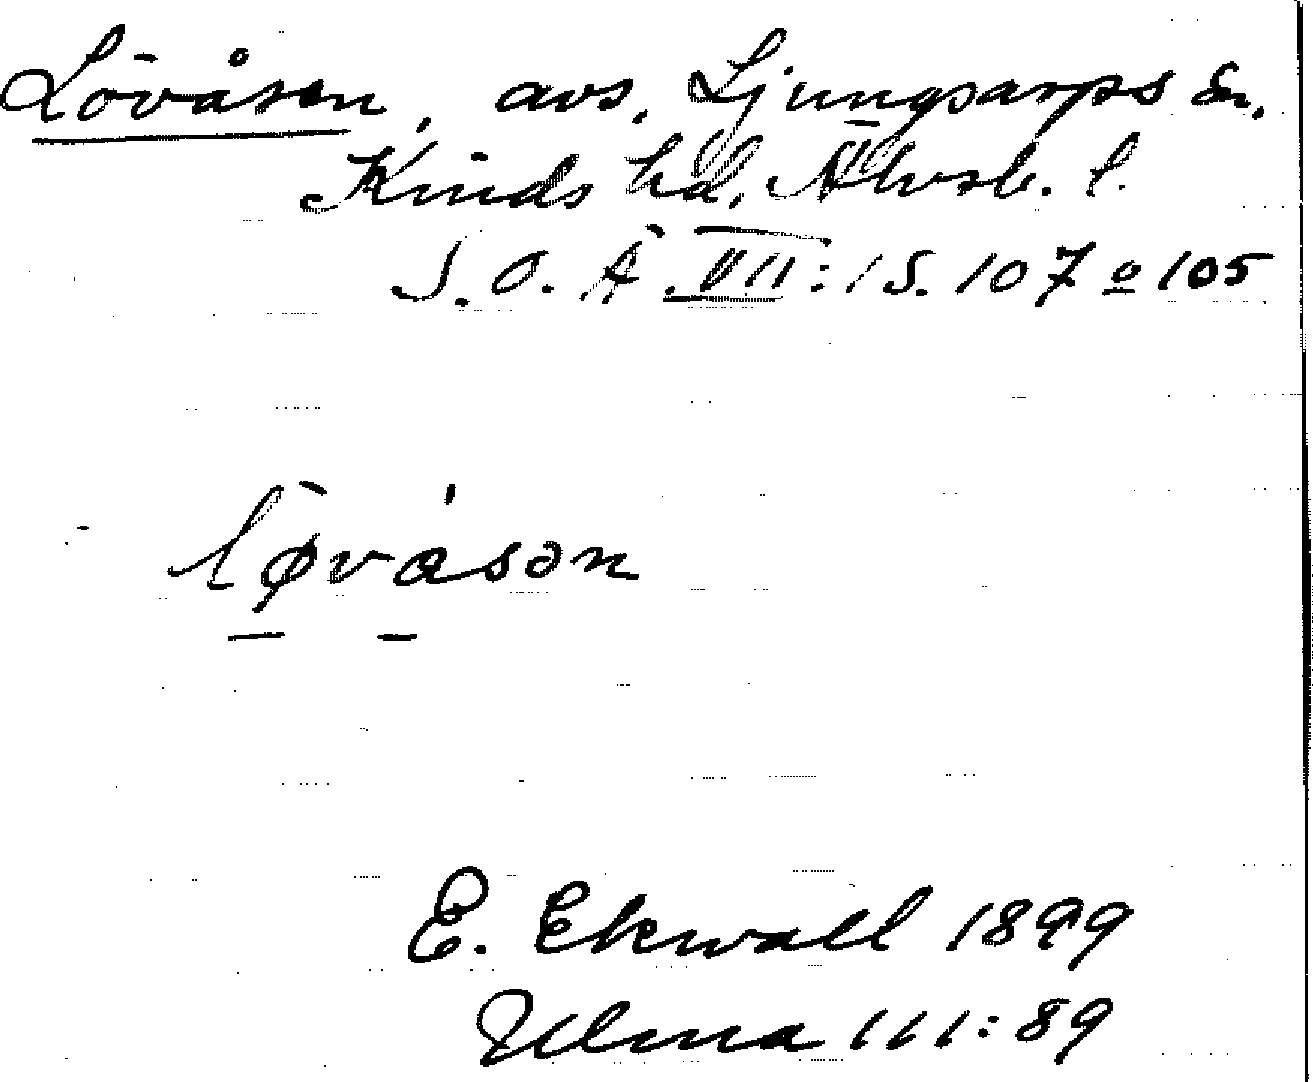 Lövåsen, avs, Ljungsarps sn,
Kinds hd, Älvsb. l.
S. O. Ä VII: 1 S. 107 o 105
løvåsən
E. Ekwall 1899
Ulma 111:89